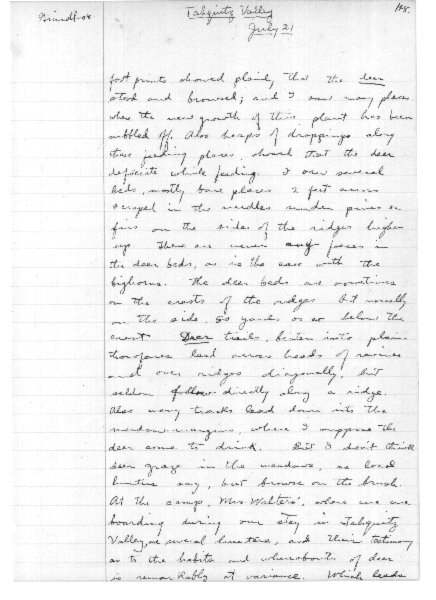 Grinnell-08
Tahquitz Valley
145.
July 21
foot prints showed plainly that the deer
stood and browsed; and I saw many places
where the new growth of this plant has been
nibbled off. Also heaps of droppings along
these feeding places, showed that the deer
deficate while feeding. I saw several
beds, mostly bare places 2 feet across
scraped in the needles under pines or
firs on the sides of the ridges higher
up. There are never any faeces in
the deer beds, as is the case with the
bighorns. The deer beds are sometimes
on the crests of the ridges but usually
on the side 50 yards or so below the
crest. Deer trails, beaten into plain
thorofares lead across heads of ravines
and over ridges diagonally, but
seldom follow directly along a ridge.
Also many tracks lead down into the
meadow-margins, where I suppose the
deer come to drink. But I don't think
deer graze in the meadows, as local
hunters say, but browse on the brush.
At the camp, Mrs. Walters', where we are
boarding during our stay in Tahquitz
Valley, are several hunters, and their testimony
as to the habits and whereabouts of deer
is remarkably at variance. Which leads